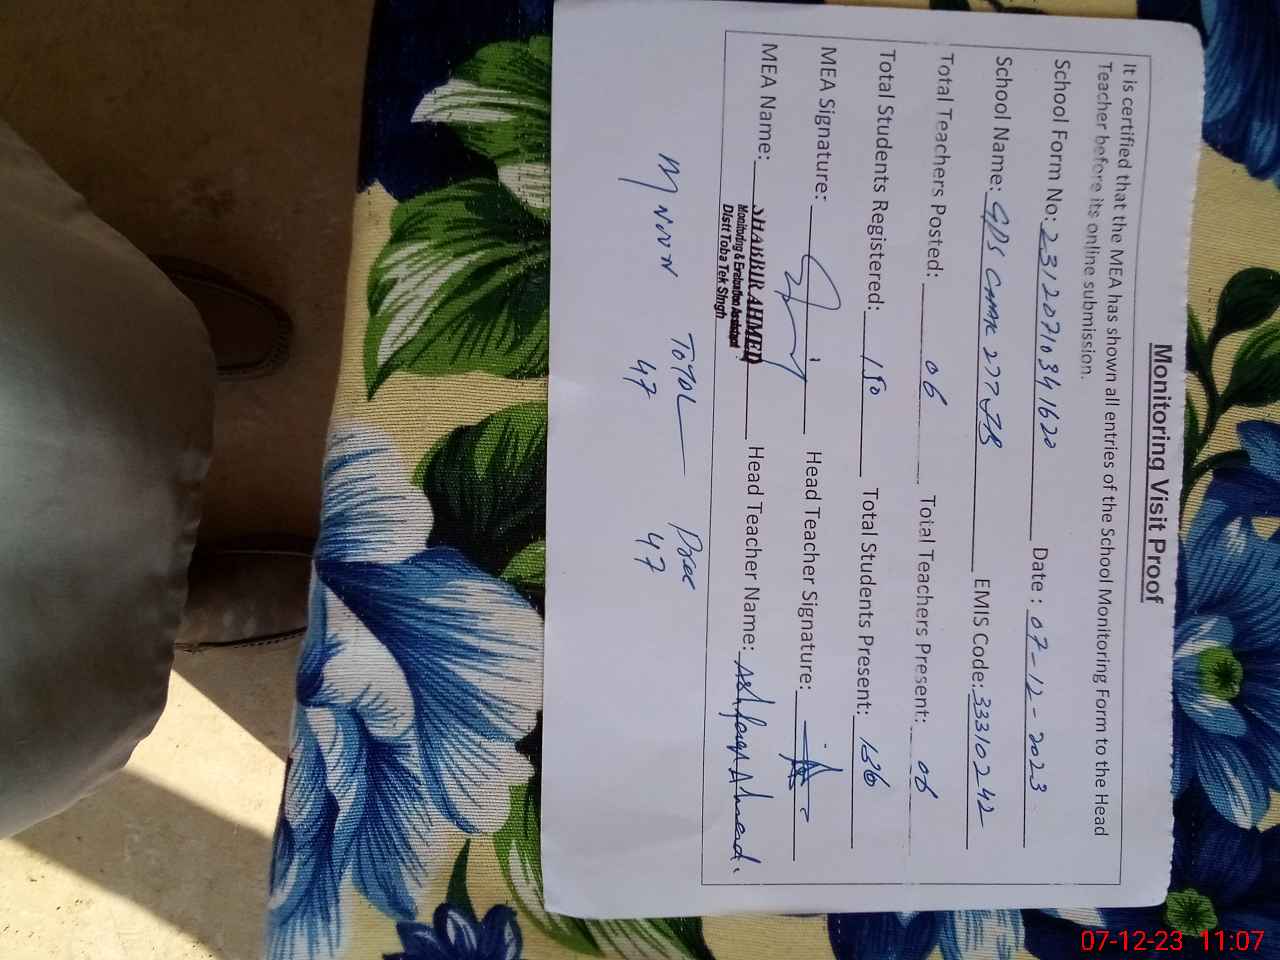 Monitoring Visit Proof
It is certified that the MEA has shown all entries of the School Monitoring Form to the Head
Teacher before its online submission.
School Form No: 23120710341620 Date : 07-12-2023
School Name: GPS Chak 277 JB EMIS Code: 33310242
Total Teachers Posted: 06 Total Teachers Present: 06
Total Students Registered: 150 Total Students Present: 136
MEA Signature: Head Teacher Signature:
MEA Name: SHABBIR AHMED Head Teacher Name: Ashfaq Ahmad.
Monitoring & Evaluation Assistant
Distt Toba Tek Singh
Total
47 47
07-12-23 11:07